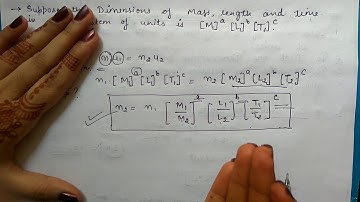 → Suppose the Dimensions of Mass, length and time
in system of units is [M]ᵃ [L]ᵇ [T]ᶜ.
n₁u₁ = n₂u₂
n₁ [M₁]ᵃ [L₁]ᵇ [T₁]ᶜ = n₂ [M₂]ᵃ [L₂]ᵇ [T₂]ᶜ
n₂ = n₁ [M₁/M₂]ᵃ [L₁/L₂]ᵇ [T₁/T₂]ᶜ